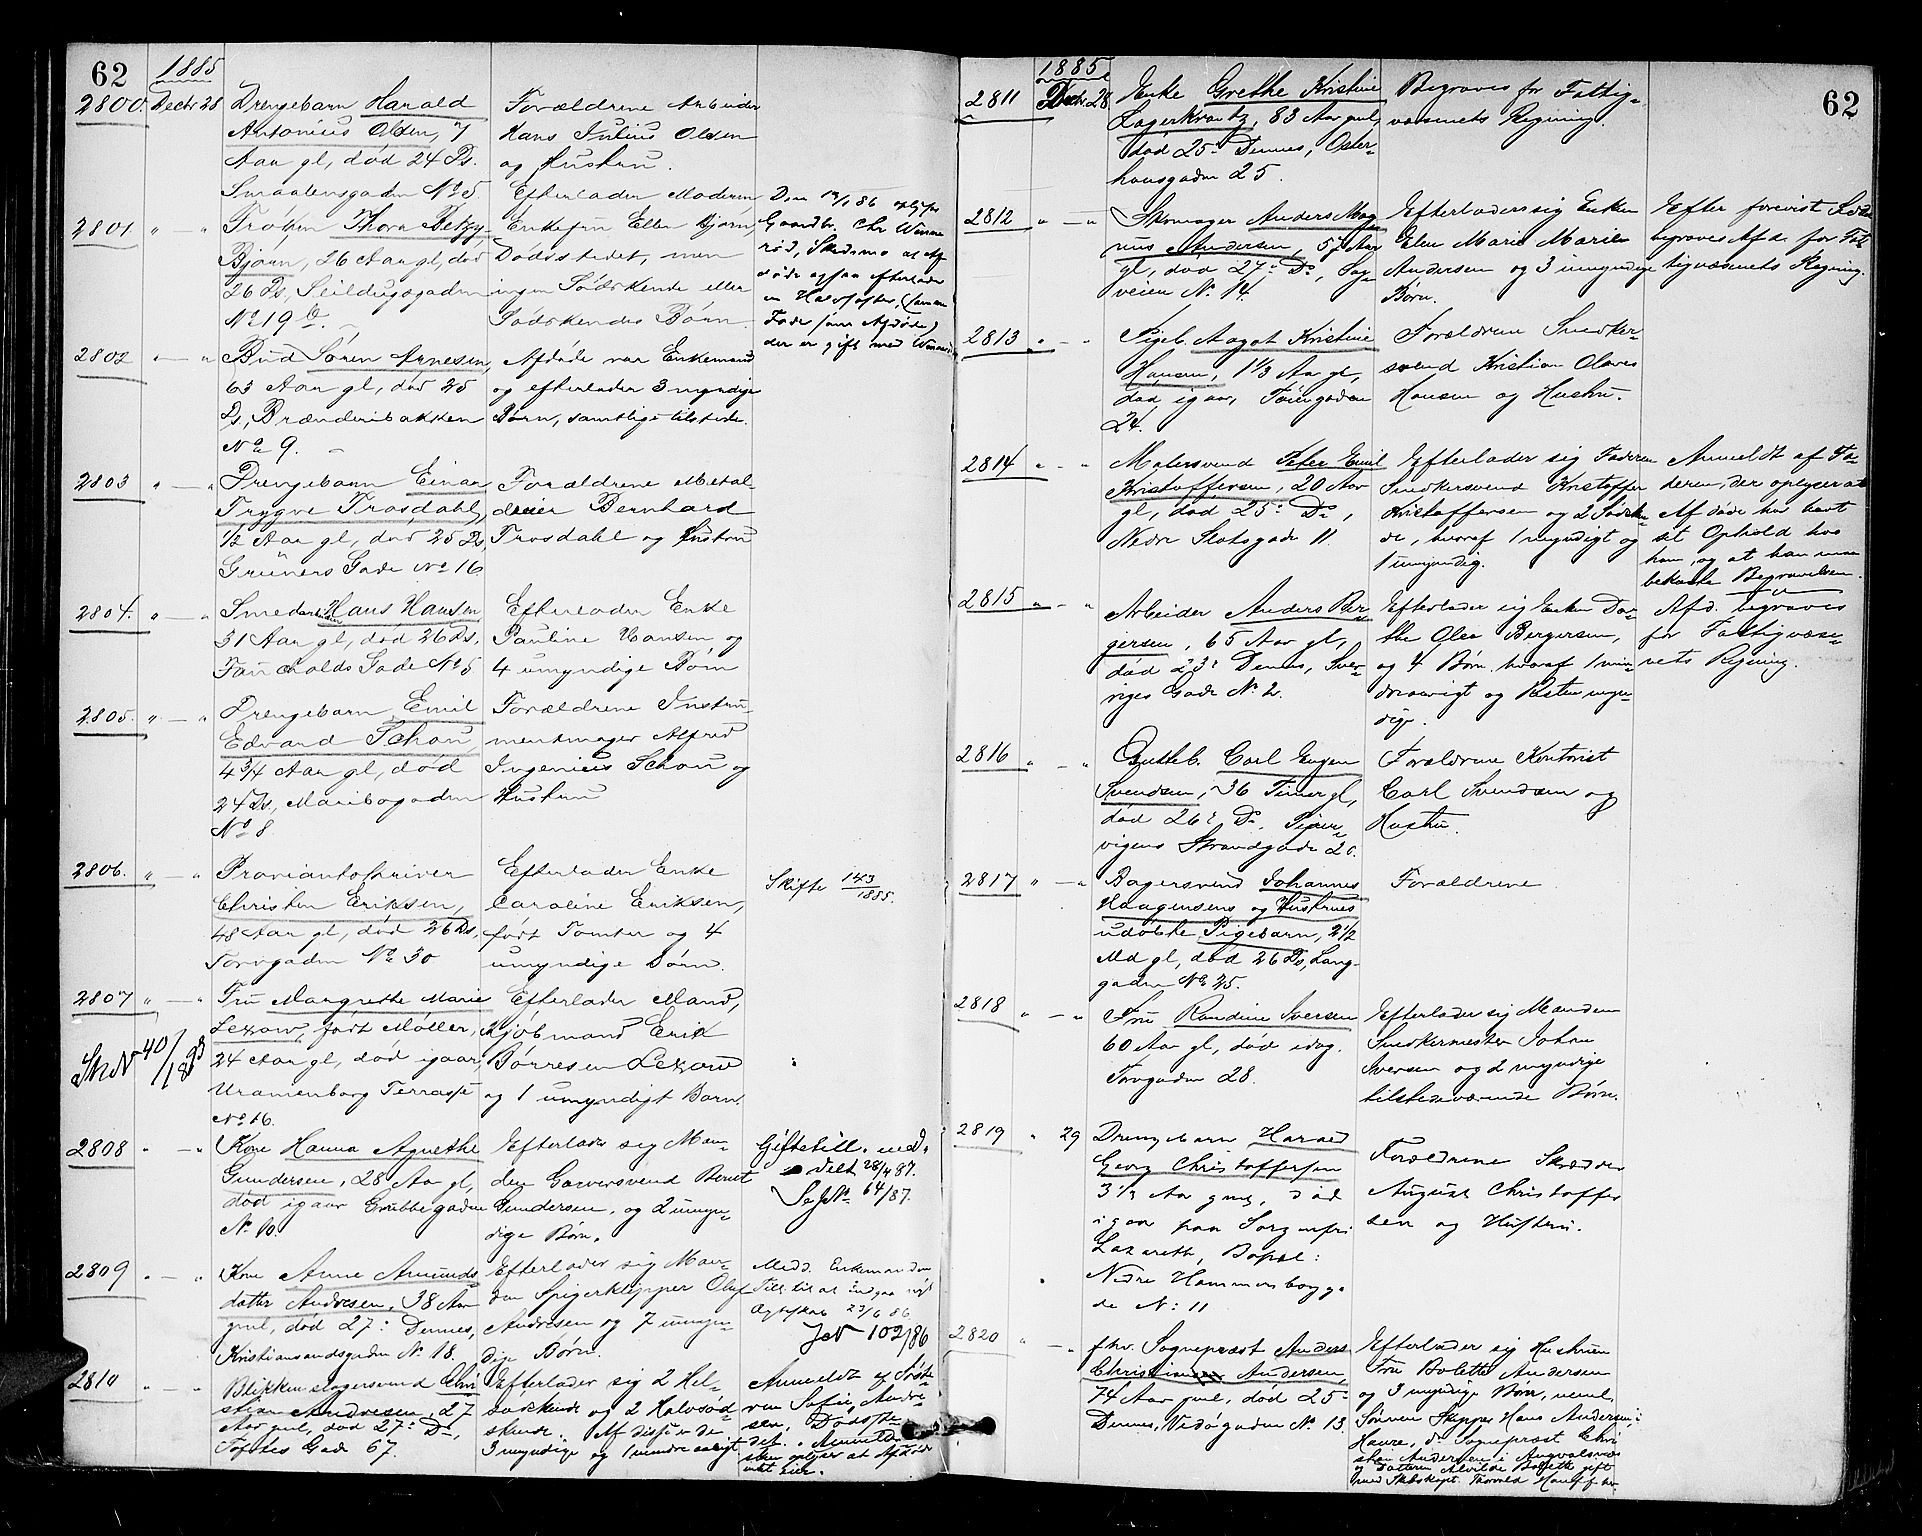 62
1885
2800. Decbr 28 Drengebarn Harald
Antonius Olsen, 7
Aar gl, død 24 Ds.
Smaalensgaden No 5
Forældrene Arbeider
Hans Julius Olsen
og Hustru.
2801 " — " Frøken Thora Betzy
Bjørn, 26 Aar gl, død
26 Ds, Seildugsgaden
No 19 b.
Efterlader Moderen
Enkefru Ellen Bjørn,
Dødsstedet, men
ingen Sødskende eller
Sødskendes Børn.
Gaardbr. Chr Winne
rød, Skedsmo at Af
døde ogsaa efterlader
en Halvsøster, (samme
Fader som Afdøde)
der er gift med
2802 " — " Bud Søren Arnesen,
63 Aar gl, død 25
Ds, Brænderibakken
No 9. —
Afdøde var Enkemand
og efterlader 3 myndige
Børn, samtlige tilstede.
2803 " — " Drengebarn Einar
Trygve Trosdahl,
1/2 Aar gl, død 25 Ds,
Grüners Gade No 16
Forældrene Metal-
dreier Bernhard
Trosdahl og Hustru
2804. " — " Smed Hans Hansen
31 Aar gl, død 26 Ds,
Fauchalds Gade No 5
Efterlader Enke
Pauline Hansen og
4 umyndige Børn
2805. " — " Drengebarn Emil
Edvard Schou,
4 3/4 Aar gl, død
24 Ds, Maribogaden
No 8
Forældrene Instru-
mentmager Alfred
Ingenius Schou og
Hustru
2806. " — " Proviantskriver
Christen Eriksen,
48 Aar gl, død 26 Ds,
Torvgaden No 30
Efterlader Enke
Caroline Eriksen,
født Tomter og 4
umyndige Børn.
Skifte 143/1885.
2807 " — " Fru Margrethe Marie
Lexow, født Møller,
24 Aar gl, død igaar,
Uranienborg Terrasse
No 16.
Efterlader Mand,
Kjøbmand Erik
Børresen Lexow
og 1 umyndigt Barn.
2808 " — " Kone Hanna Agnethe
Gundersen, 28 Aar gl,
død igaar Grubbegaden
No 10.
Efterlader sig Man-
den Garversvend Bernt
Gundersen, og 2 umyn-
dige Børn.
Giftetill. med-
delt 28/4 87.
64/87.
2809 " — " Kone Anne Amunds-
datter Andresen, 38 Aar
gml, død 27: Dennes,
Kristiansandsgaden No 18.
Efterlader sig Man-
den Spigerklipper Oluf
Andresen og 7 umyn-
dige Børn.
Medd. Enkemanden
Till. til at indgaa nyt
Ægteskab 23/6 86
102/86
2810 " — " Blikkenslagersvend Chri
stian Andresen, 27
Aar gml, død 27: Ds,
Toftes Gade 67.
Efterlader sig 2 Hel-
sødskende og 2 Halvsød-
skende. Af disse er de
3 myndige og 1 mindreaarigt
Anmeldt af Søste-
ren Sofie Andre-
sen, Dødsste-
det. Anmelder-
sken oplyser at Afdøde
intet eier.
62
1885
2811 Decbr 28. Enke Grethe Kristine
Lagerkrantz, 83 Aar gml,
død 25: Dennes, Oster-
hausgaden 25.
Begraves for Fattig-
væsenets Regning.
2812 " — " Skomager Anders Mag
nus Andersen, 57 Aar
gl, død 27: Ds, Sag-
veien No 14.
Efterlader sig Enken
Elen Marie Marie
Andersen og 3 umyndige
Børn.
Efter forevist
begraves Afd. for Fat
tigvæsenets Regning.
2813 " — " Pigeb. Aagot Kristine
Hansen, 1 1/3 Aar gl,
død igaar, Tøiengaden
24.
Forældrene Snedker-
svend Kristian Olaves
Hansen og Hustru.
2814 " — " Malersvend Peter Emil
Kristoffersen, 20 Aar
gl, død 25: Ds,
Nedre Slotsgade 11.
Efterlader sig Faderen
Snedkersvend Kristoffer
Kristoffersen og 2 Sødsken
de, hvoraf 1 myndigt og
1 umyndig.
Anmeldt af Fa-
deren, der oplyser at
Afdøde har havt
sit Ophold hos
ham, og at han maa
bekoste Begravelsen.
2815 " — " Arbeider Anders Ber
gersen, 65 Aar gl,
død 23: Dennes, Sver-
riges Gade No 2.
Efterlader sig Enken Dor-
the Olea Bergersen,
og 4 Børn, hvoraf 1 min-
dreaarigt og Resten myn-
dige.
Afd. begraves
for Fattigvæse-
nets Regning.
2816 " — " Gutteb. Carl Eugen
Svendsen, 36 Timer gl,
død 26: Ds, Piper-
vigens Strandgade 20.
Forældrene Kontorist
Carl Svendsen og
Hustru.
2817 " — " Bagersvend Johannes
Haagensens og Hustrues
udøbte Pigebarn, 2 1/2
Md gl, død 26 Ds, Lang-
gaden No 25.
Forældrene
2818 " — " Fru Randine Iversen
60 Aar gl, død idag.
Torvgaden 28.
Efterlader sig Manden
Snedkermester Johan
Iversen og 2 myndige
tilstedeværende Børn.
2819 " 29 Drengebarn Harald
Georg Christoffersen
3 1/2 Aar gml, død
igaar paa Sorgenfri
Lazareth, Bopæl:
Nedre Hammersborgga-
de No 11
Forældrene Skrædder
August Christoffer
sen og Hustru.
2820 " — " fhv. Sogneprest Anders
Christian Andersen,
74 Aar gml, død 25:
Dennes, Vidargaden No 13
Efterlader sig Hustruen
Fru Bolette Andersen
og 3 myndige Børn, neml.
Sønnen Skipper Hans Andersen,
Havre, Sogneprest Chri
stian Andersen i
og Datteren Alvilde Bolette gift
med Skibskapt. Thorvald